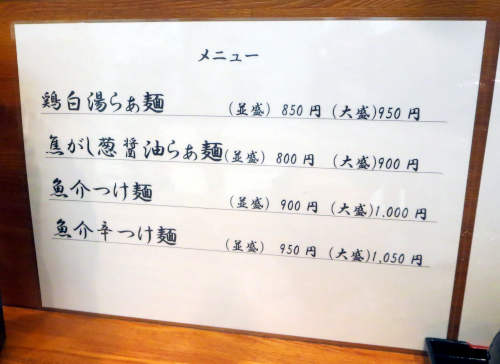 メニュー
鶏白湯らぁ麺 (並盛) 850円 (大盛)950円
焦がし葱醬油らぁ麺(並盛) 800円 (大盛)900円
魚介つけ麺 (並盛) 900円 (大盛)1,000円
魚介辛つけ麺 (並盛) 950円 (大盛)1,050円